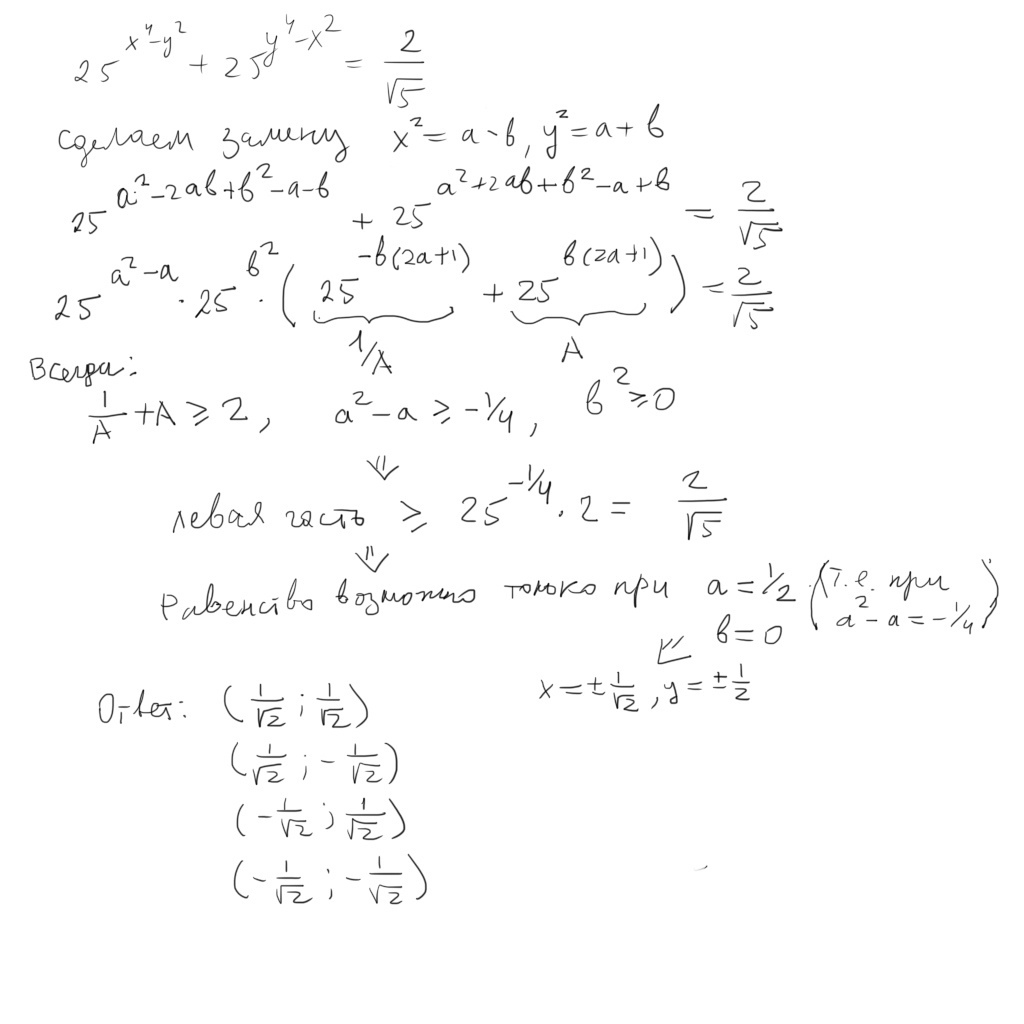 25^{x^4-y^2} + 25^{y^4-x^2} = \frac{2}{\sqrt{5}}
сделаем замену x^2 = a-b, y^2 = a+b
25^{a^2-2ab+b^2-a-b} + 25^{a^2+2ab+b^2-a+b} = \frac{2}{\sqrt{5}}
25^{a^2-a} \cdot 25^{b^2} \cdot (25^{-b(2a+1)} + 25^{b(2a+1)}) = \frac{2}{\sqrt{5}}
1/A A
Всегда:
\frac{1}{A} + A ≥ 2, a^2 - a ≥ -1/4, b^2 ≥ 0
⇓
левая часть ≥ 25^{-1/4} \cdot 2 = \frac{2}{\sqrt{5}}
⇓
Равенство возможно только при a = 1/2 (т.е. при a^2 - a = -1/4)
b = 0
x = ± \frac{1}{\sqrt{2}}, y = ± \frac{1}{2}
Ответ: (\frac{1}{\sqrt{2}}; \frac{1}{\sqrt{2}})
(\frac{1}{\sqrt{2}}; -\frac{1}{\sqrt{2}})
(-\frac{1}{\sqrt{2}}; \frac{1}{\sqrt{2}})
(-\frac{1}{\sqrt{2}}; -\frac{1}{\sqrt{2}})